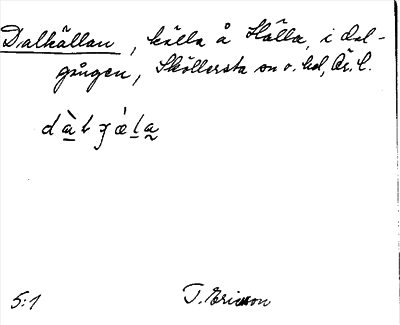 Dalkällan, källa å Hälla, i dal-
gången, Sköllersta sn o. hd, Ör. l.
5:1 T. Ericson